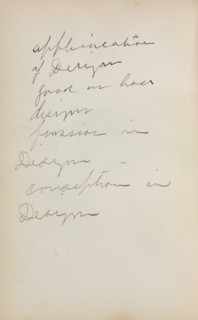 application
of Design
good or bad
design
passion in
Design -
conception in
Design